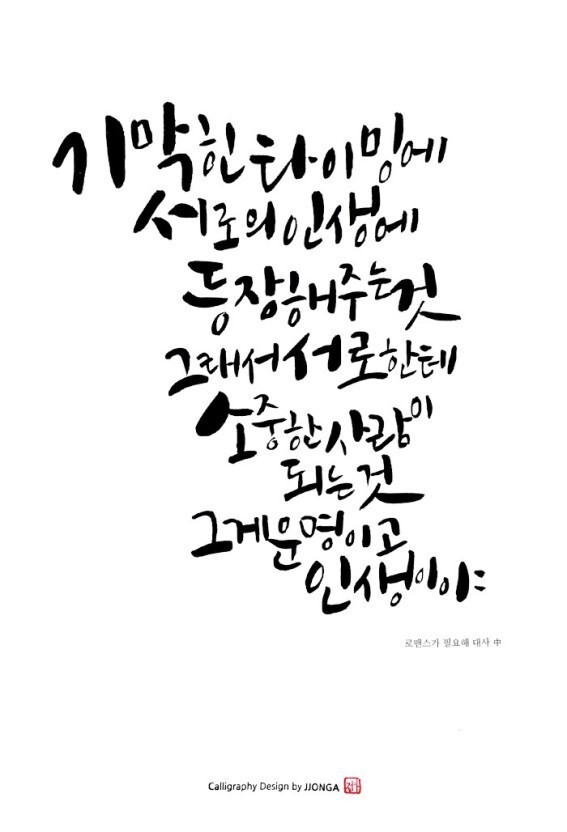 기막힌 타이밍에
서로의 인생에
등장해주는것
그래서 서로한테
소중한 사람이
되는것
그게 운명이고
인생이야
로맨스가 필요해 대사 中
Calligraphy Design by JJONGA